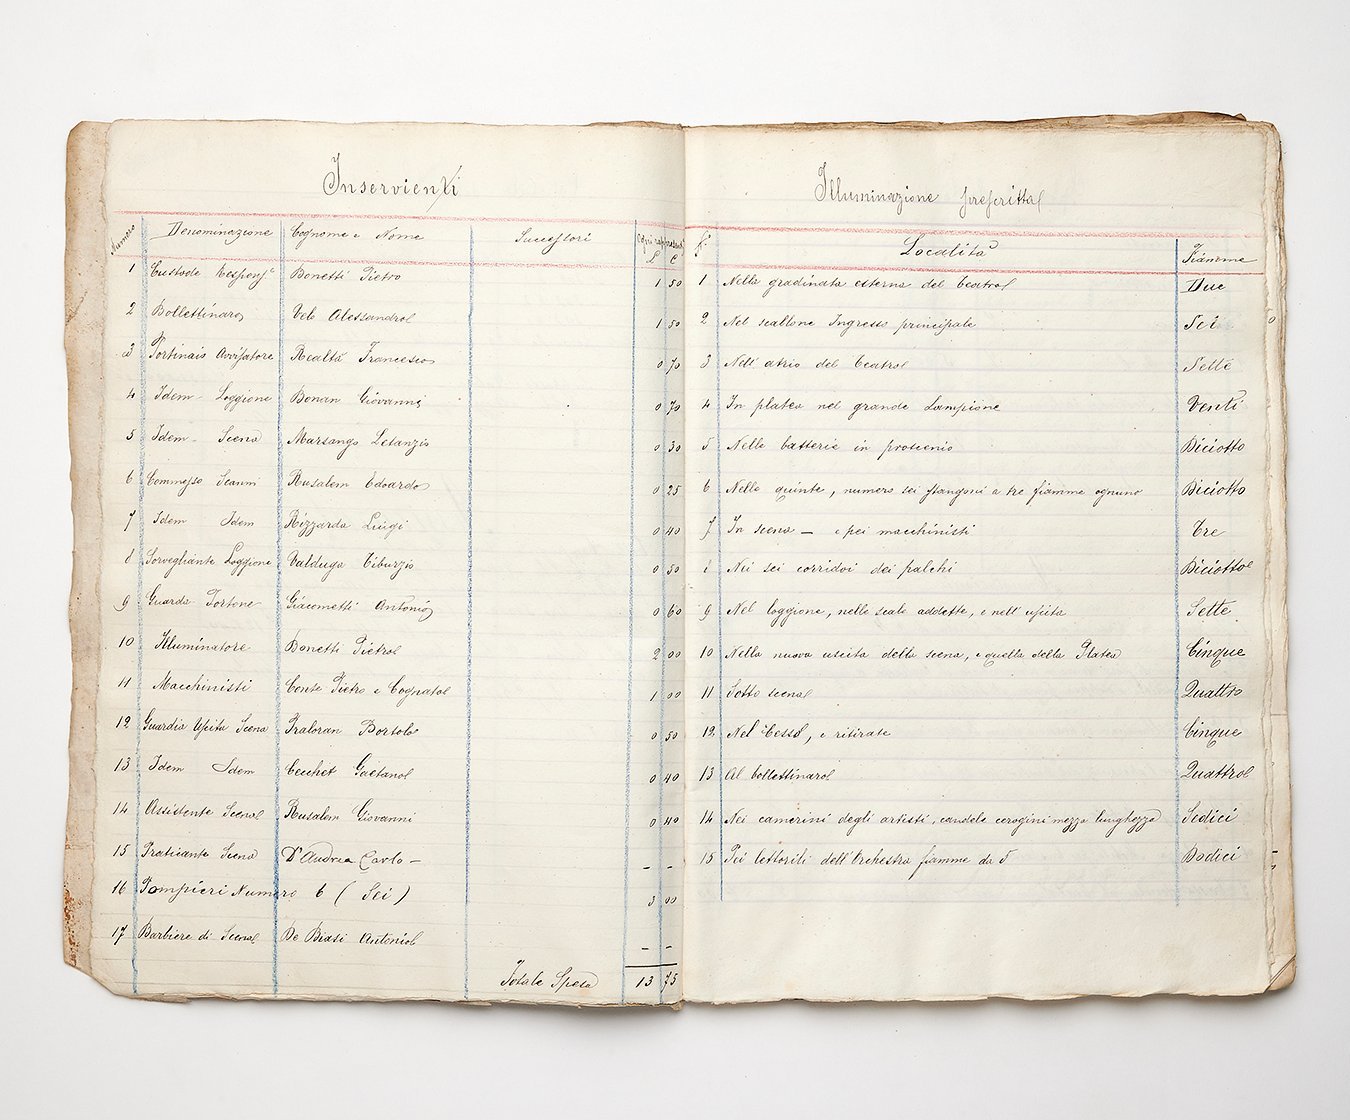 Inservienti
Numero Denominazione Cognome e Nome Successori Ogni
L C
1 Custode Responsᵉ Bonetti Pietro 1 50
2 Bollettinaro Velo Alessandro 1 50
3 Portinaio Avvisatore Realtà Francesco 0 70
4 Idem - Loggione Bonan Giovanni 0 70
5 Idem - Scena Marsango Letanzio 0 30
6 Commesso Scanni Rusalem Edoardo 0 25
7 Idem Idem Rizzarda Luigi 0 40
8 Sorvegliante Loggione Valduga Tiburzio 0 50
9 Guarda Portone Giacometti Antonio 0 60
10 Illuminatore Bonetti Pietro 2 00
11 Macchinisti Conte Pietro e Cognato 1 00
12 Guardia Uscita Scena Praloran Bortolo 0 50
13 Idem Idem Cecchet Gaetano 0 40
14 Assistente Scena Rusalem Giovanni 0 40
15 Praticante Scena D'Andrea Carlo - - -
16 Pompieri Numero 6 (Sei) 3 00
17 Barbiere di Scena De Biasi Antonio - -
Totale Spesa 13 75
Illuminazione prescritta
Località Fiamme
1 Nella gradinata esterna del Teatro Due
2 Nel scallone Ingresso principale Sei
3 Nell' atrio del Teatro Sette
4 In platea nel grande Lampione Venti
5 Nelle batterie in proscenio Diciotto
6 Nelle quinte, numero sei stangoni a tre fiamme ognuno Diciotto
7 In scena — e pei macchinisti Tre
8 Nei sei corridoi dei palchi Diciotto
9 Nel loggione, nelle scale addette, e nell' uscita Sette
10 Nella nuova uscita della scena, e quella della Platea Cinque
11 Sotto scena Quattro
12 Nel Cesso, e ritirate Cinque
13 Al bollettinaro Quattro
14 Nei camerini degli artisti, candele cerogini mezza lunghezza Sedici
15 Pei lettorili dell'Orchestra fiamme da 5 Dodici